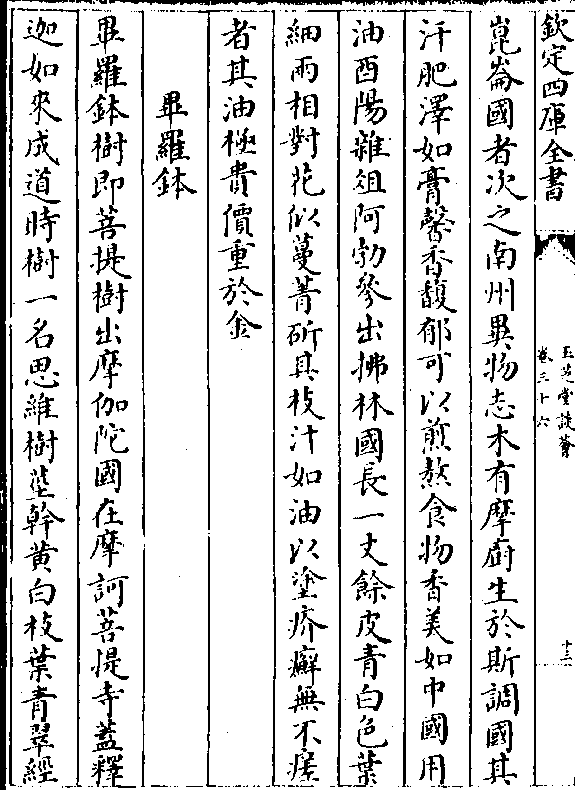 欽定四庫全書
玉芝堂談薈
卷三十六
十三
崑崙國者次之南州異物志木有摩廚生於斯調國其
汁肥澤如膏馨香馥郁可以煎熬食物香美如中國用
油酉陽雜俎阿勃參出拂林國長一丈餘皮青白色葉
細兩相對花似蔓菁斫其枝汁如油以塗疥癬無不瘥
者其油極貴價重於金
畢羅鉢
畢羅鉢樹即菩提樹出摩伽陀國在摩訶菩提寺蓋釋
迦如來成道時樹一名思維樹莖幹黄白枝葉青翠經